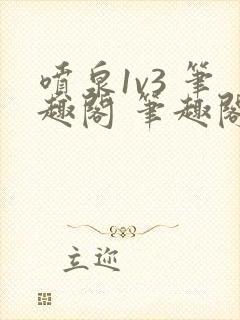 喷泉1v3 笔
趣阁 笔趣阁
立迩